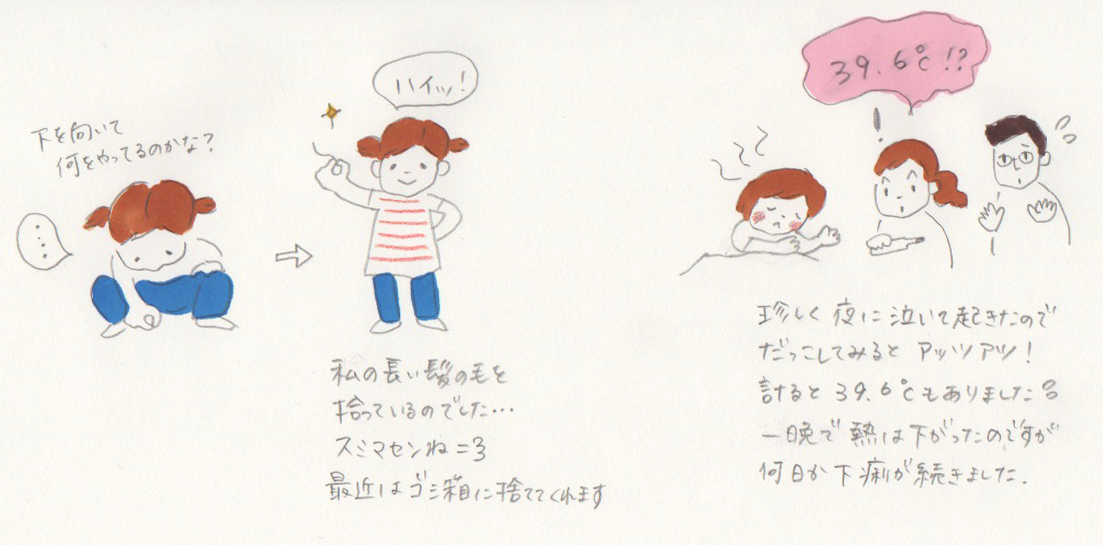 下を向いて
何をやってるのかな?
・・・
ハイッ!
私の長い髪の毛を
拾っているのでした・・・
スミマセンね=3
最近はゴミ箱に捨ててくれます
39.6℃!?
!
珍しく夜に泣いて起きたので
だっこしてみるとアッツアツ!
計ると39.6℃もありました
一晩で熱は下がったのですが
何日か下痢が続きました.